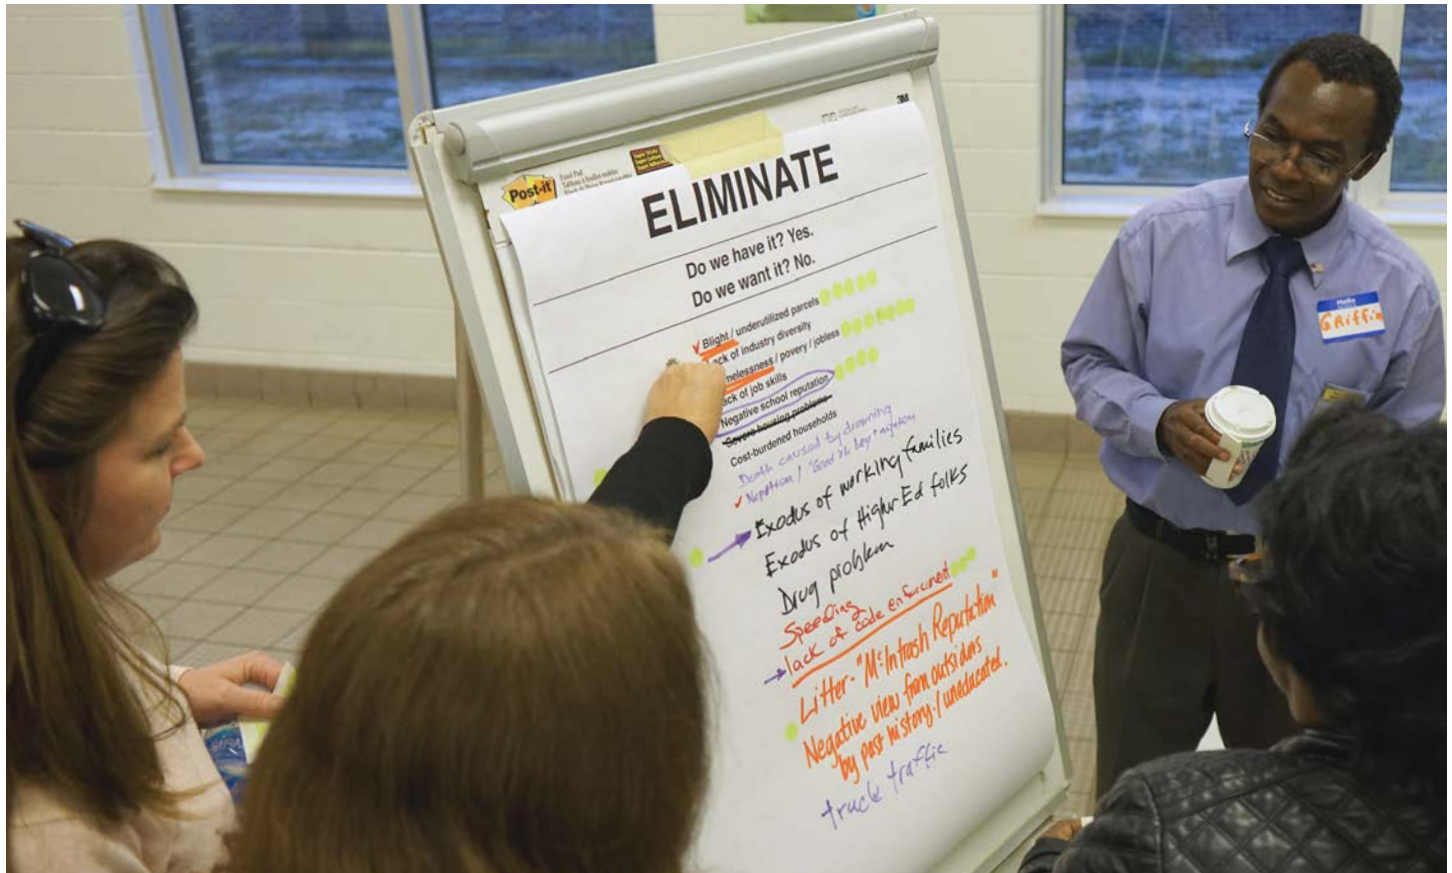 3M
Post-it
ELIMINATE
Do we have it? Yes.
Do we want it? No.
Blight / underutilized parcels
ack of industry diversity
melessness / povery / jobless
ack of job skills
Negative school reputation
Severe housing problems
Cost-burdened households
Death caused by drowning
Nepotism / "Good Ole Boy"
Exodus of working families
Exodus of Higher Ed folks
Drug problem
Speeding
lack of code enforcement
Litter - "McIntrash Reputation"
Negative view from outsiders
by past history / uneducated.
truck traffic
Hello
GRiffin